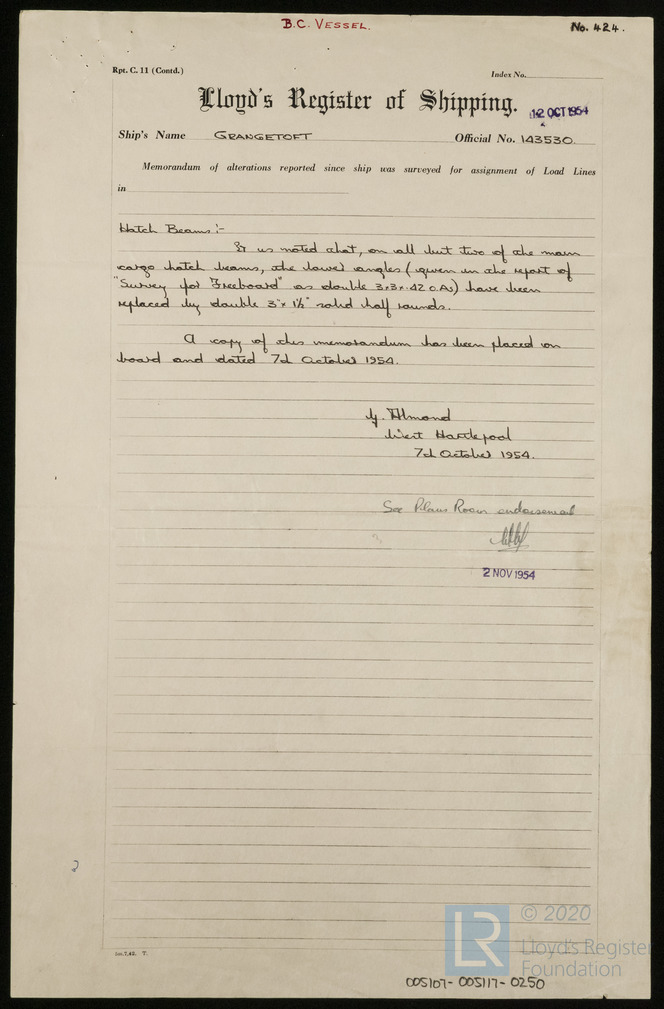 B.C. VESSEL.
No. 424.
Rpt. C. 11 (Contd.)
Index No.
Lloyd's Register of Shipping.
12 OCT 1954
Ship's Name GRANGETOFT
Official No. 143530.
Memorandum of alterations reported since ship was surveyed for assignment of Load Lines
in
Hatch Beams:-
It is noted that, on all but two of the main
cargo hatch beams, the lower angles (given in the report of
"Survey for Freeboard" as double 3x3x.42 O.As) have been
replaced by double 3"x 1½" solid half rounds.
A copy of this memorandum has been placed on
board and dated 7d October 1954.
Y. Almond
West Hartlepool
7d October 1954.
See Plans Room endorsement
2 NOV 1954
T.
© 2020
LR
Lloyd's Register
Foundation
005107-005117-0250